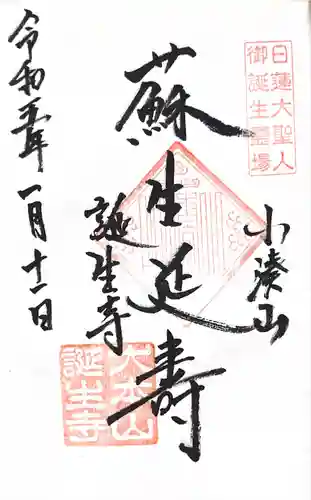 日蓮大聖人
御誕生霊場
小湊山
蘇生延壽
誕生寺
令和五年一月十一日
大本山
誕生寺